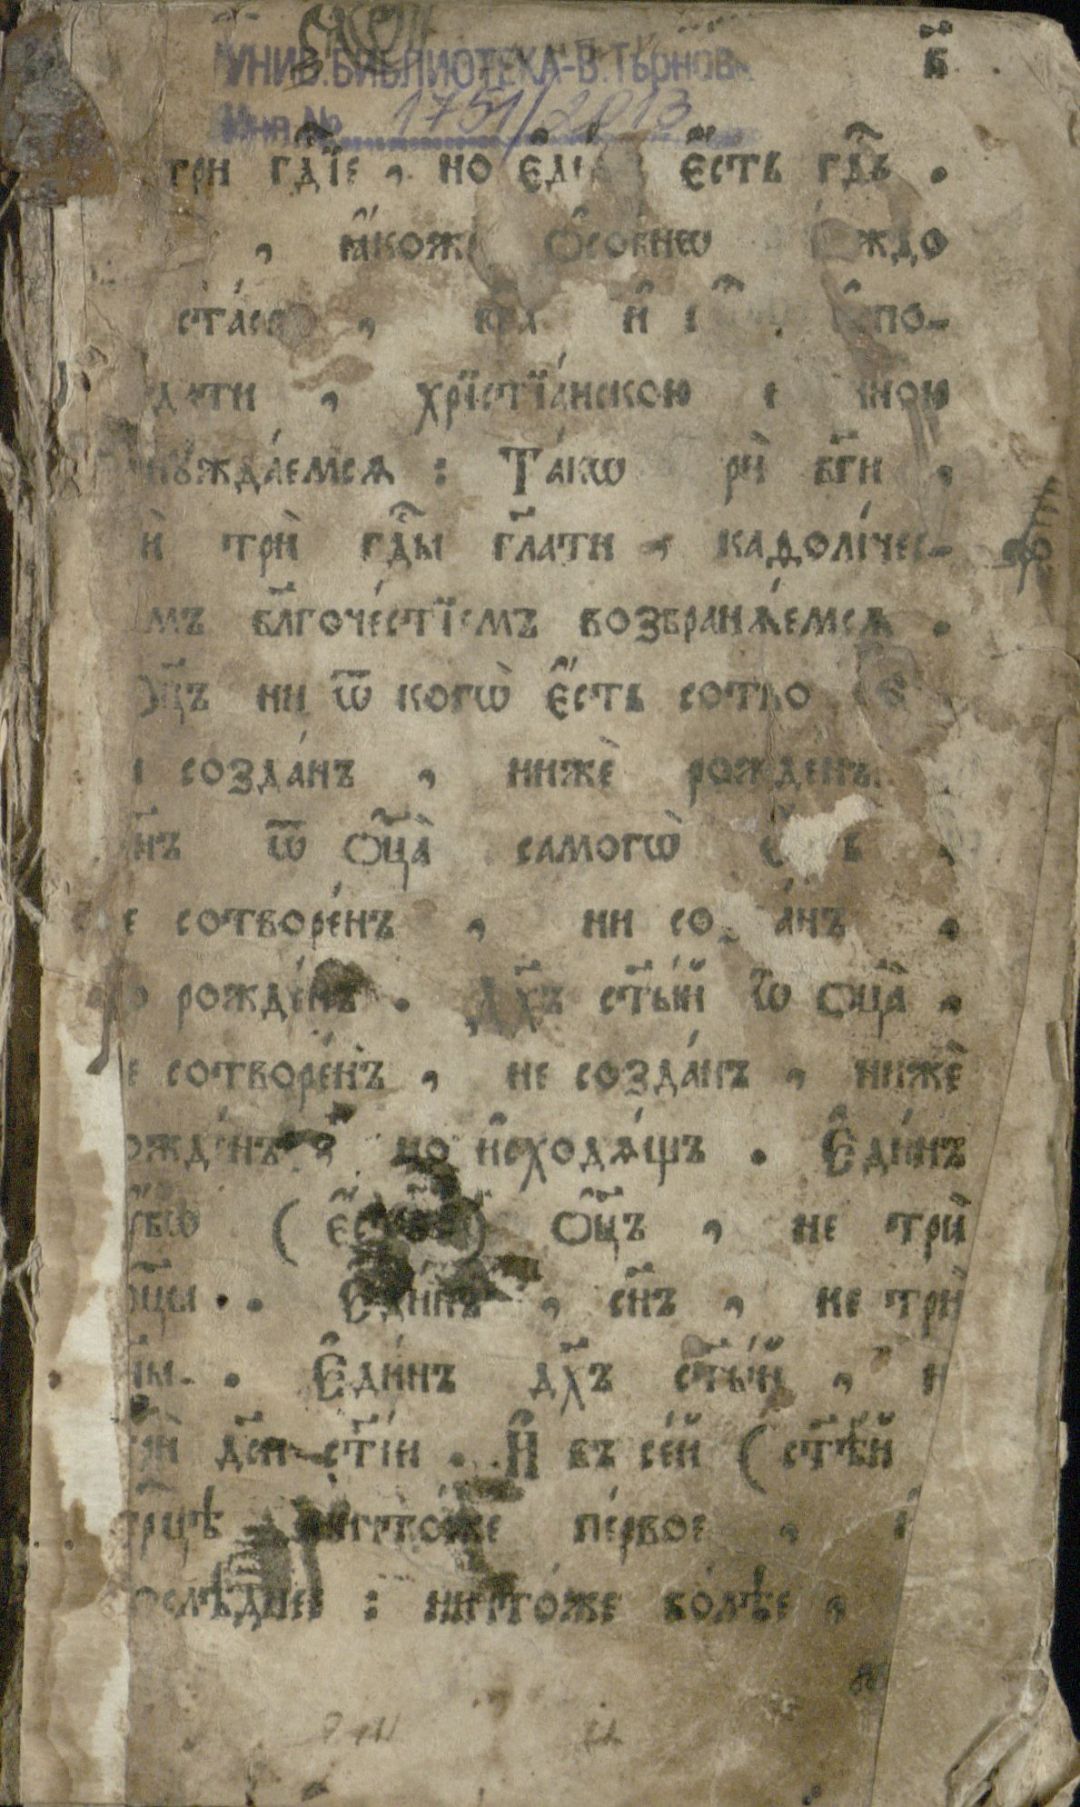 УНИВ.БИБЛИОТЕКА-В.Търново
Инв.№ 1751/2013
в҃
три гдⷭ҇їе , но є҆ди є҆́сть гдⷭ҇ь .
, ꙗ҆́коже ѻ҆со́бнѡ ждо
ста́сь , бг҃а и҆ и҆спо-
дати , хрїстїа́нскою и҆ ною
нꙋжда́емсѧ : Та́кѡ рѝ бг҃и ,
и҆̀ трѝ гдⷭ҇ы гл҃ати , каѳоли́чес-
мъ бл҃гоче́стїемъ возбранѧ́емсѧ .
ѻц҃ъ ни ѿ когѡ̀ є҆́сть сотво
созда́нъ , нижѐ рожде́нъ.
н҃ъ ѿ ѻ҆ц҃а̀ самогѡ̀ ,
не сотворе́нъ , ни со а́нъ ,
но рожде́нъ . Дх҃ъ ст҃ы́й ѿ ѻ҆ц҃а̀ ,
е сотворе́нъ , не созда́нъ , нижѐ
ожде́нъ , но и҆сходѧ́щъ . Є҆ди́нъ
ᲂу҆́бѡ ( є҆́сть ) ѻ҆ц҃ъ , не трѝ
ѻц҃ы . Є҆ди́нъ , сн҃ъ , не трѝ
ы . Є҆ди́нъ дх҃ъ ст҃ы́й , н
трѝ дс҃и ст҃і́и . И҆ въ се́й ( ст҃ѣ́й
трⷪ҇цѣ ничто́же пе́рвое ,
ослѣ́днее : ничто́же бо́лѣе ,